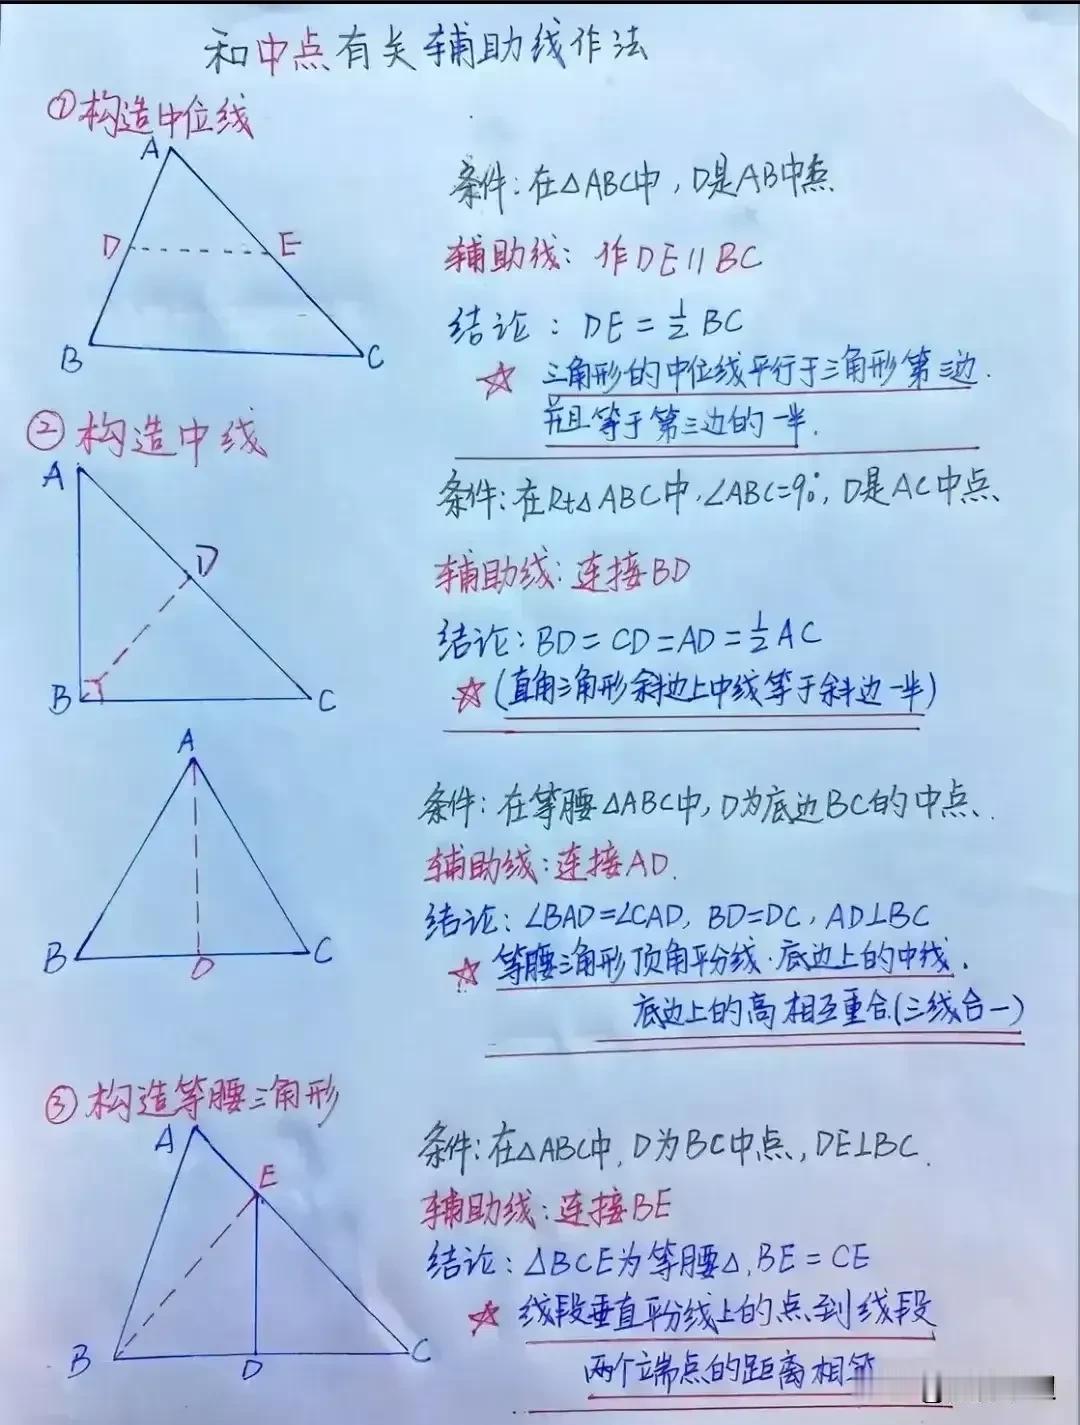 和中点有关辅助线作法
①构造中位线
A
D
E
B
C
条件:在△ABC中,D是AB中点.
辅助线:作DE∥BC
结论:DE=½BC
☆ 三角形的中位线平行于三角形第三边.
并且等于第三边的一半.
②构造中线
A
D
B
C
条件:在Rt△ABC中,∠ABC=90°,D是AC中点、
辅助线:连接BD
结论:BD=CD=AD=½AC
☆(直角三角形斜边上中线等于斜边一半)
A
B
D
C
条件:在等腰△ABC中,D为底边BC的中点、
辅助线:连接AD.
结论:∠BAD=∠CAD,BD=DC,AD⊥BC
☆ 等腰三角形顶角平分线.底边上的中线.
底边上的高相互重合(三线合一)
③构造等腰三角形
A
E
B
D
C
条件:在△ABC中,D为BC中点,DE⊥BC.
辅助线:连接BE
结论:△BCE为等腰△,BE=CE
☆ 线段垂直平分线上的点到线段
两个端点的距离相等